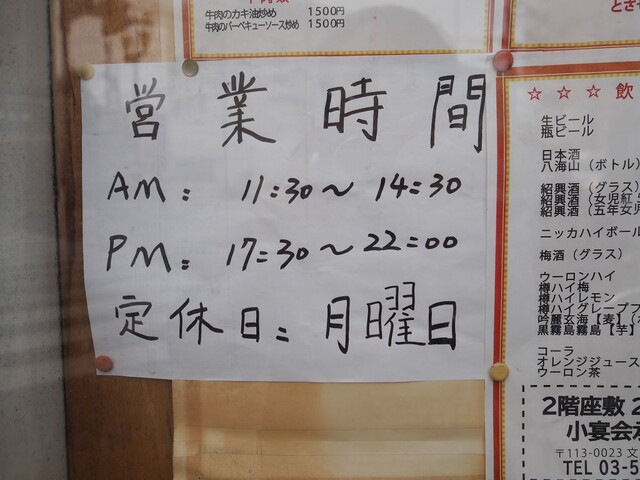 牛肉のカキ油炒め 1500円
牛肉のバーベキューソース炒め 1500円
営業時間
AM: 11:30～14:30
PM: 17:30～22:00
定休日: 月曜日
とざ
☆☆☆飲
生ビール
瓶ビール
日本酒
八海山（ボトル）
紹興酒（グラス）
紹興酒（女児紅
紹興酒（五年女児
ニッカハイボール
梅酒（グラス）
ウーロンハイ
樽ハイ梅
樽ハイレモン
樽ハイグレープフ
吟麗玄海【麦】
黒霧島霧島【芋】
コーラ
オレンジジュース
ウーロン茶
2階座敷 2
小宴会承
〒113-0023 文
TEL 03-5